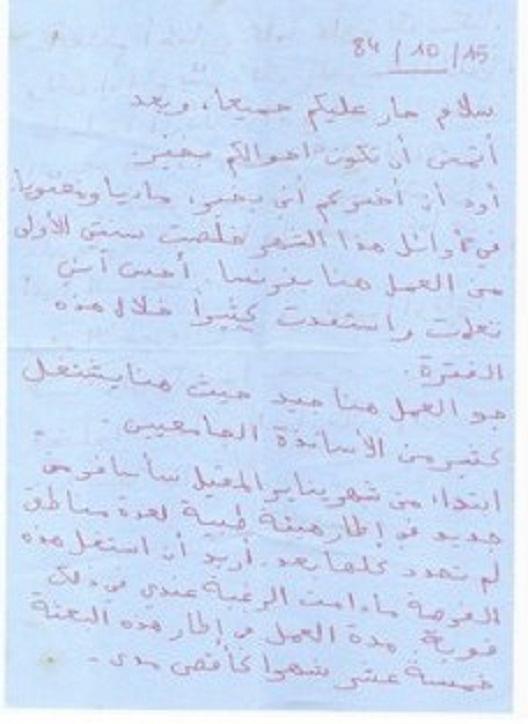 84/10/15
سلام حار عليكم جميعا، وبعد
أتمنى أن تكون احوالكم بخير.
أود أن أخبركم أني بخير، ماديا ومعنويا.
في أوائل هذا الشهر خلصت سنتي الأولى
من العمل هنا بفرنسا. أحس أنني
تعلمت واستفدت كثيرا خلال هذه
الفترة.
جو العمل هنا جيد حيث هنا يشتغل
كثير من الأساتذة الجامعيين.
ابتداء من شهر يناير المقبل سأسافر من
جديد في إطار هيئة طبية لعدة مناطق
لم تحدد كلها بعد. أريد أن استغل هذه
الفرصة ما دامت الرغبة عندي في ذلك
قوية. مدة العمل في إطار هذه البعثة
خمسة عشر شهرا كأقصى مدى.